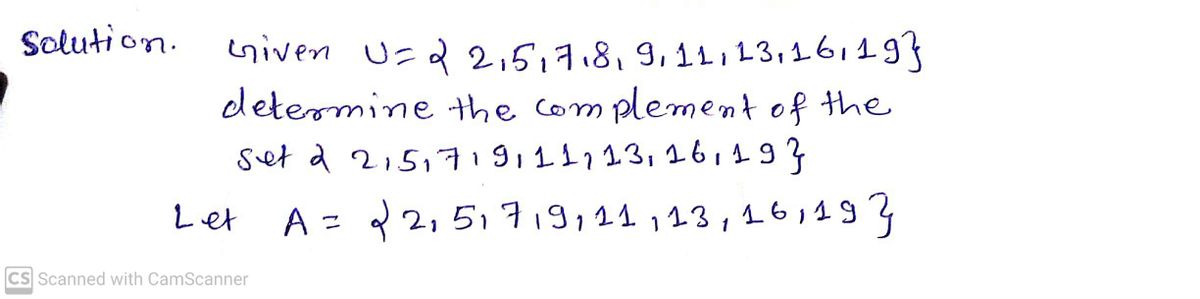 Solution. Given U = { 2,5,7,8, 9, 11, 13, 16, 19}
determine the complement of the
set { 2,5,7,9,11,13,16,19}
Let A = {2, 5, 7, 9, 11, 13, 16, 19}
CS Scanned with CamScanner